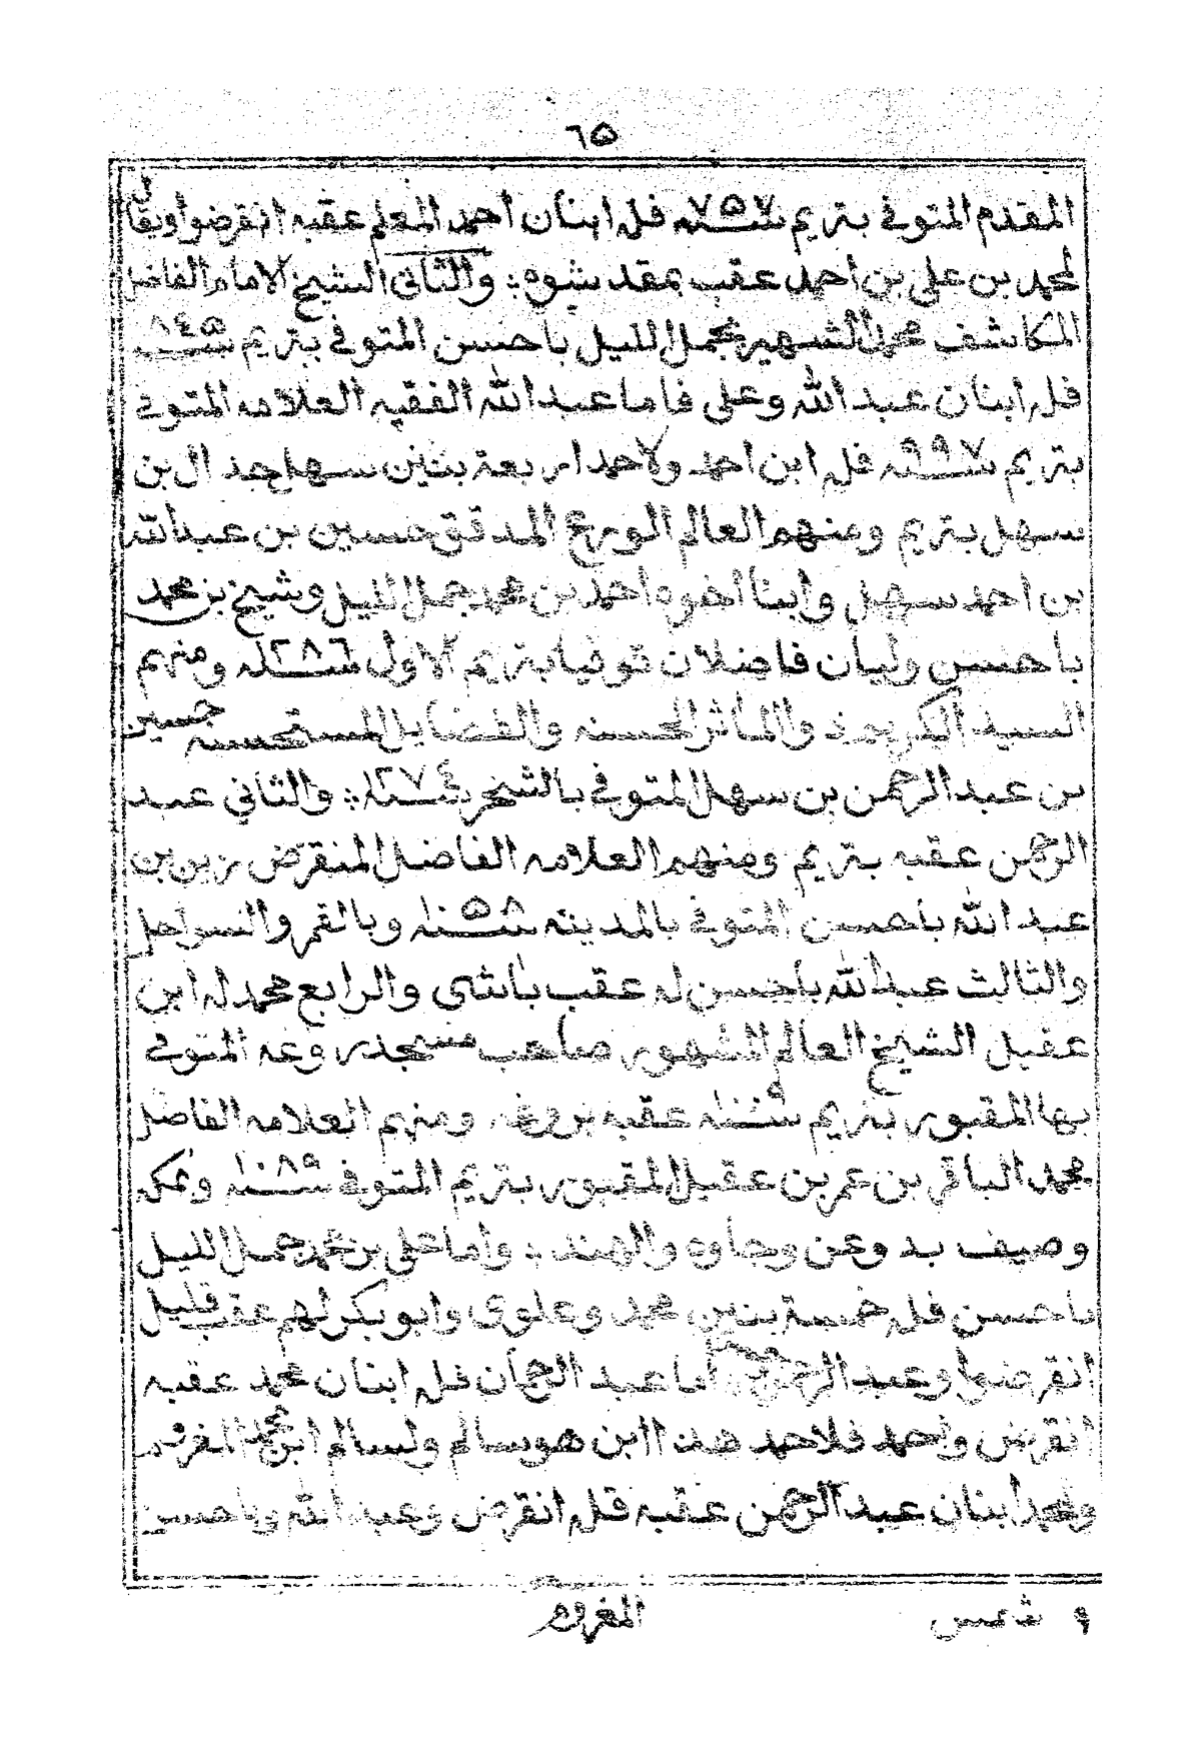 ٦٥
المقدم المتوفي بتريم سنة ٧٥٧ فله ابنان احمد المعلم عقبه انقرضوا ويقال
لمحمد بن علي بن احمد عقب بمقد شوه ؛ والثاني الشيخ الامام الفاضل
المكاشف محمد الشهير بجمل الليل باحسن المتوفي بتريم سنة ٨٤٥
فله ابنان عبد الله وعلي فاما عبد الله الفقيه العلامه المتوفي
بتريم سنة ٩٩٧ فله ابن احمد ولاحمد اربعة بنين سهل جد ال بن
سهل بتريم ومنهم العالم الورع المدقق حسين بن عبد الله
بن احمد سهيل وابنا اخوه احمد بن محمد جمل الليل وشيخ بن محمد
باحسن وليان فاضلان توفيا بتريم الاول سنة ١٢٨٦ ومنهم
السيد الكريم ذ والمأثر الحسنه والفضايل المستحسنه حسين
بن عبد الرحمن بن سهل المتوفي بالشحر سنة ١٢٧٤ ؛ والثاني عبد
الرحمن عقبه بتريم ومنهم العلامه الفاضل المنقرض زين بن
عبد الله باحسن المتوفي بالمدينه سنة وبالقمر والسواحل
والثالث عبد الله باحسن له عقب باشي والرابع محمد له ابن
عقيل الشيخ العالم المشهور صاحب مسجد روغه المتوفي
بها المقبور بتريم سنة عقبه بروغه ومنهم العلامه الفاضل
محمد الباقر بن عمر بن عقيل المقبور بتريم المتوفي سنة ١٠٨٩ وبمكه
وصيف بد وعن وجاوه والهند ؛ واما علي بن محمد جمل الليل
باحسن فله خمسة بنين محمد وعلوي وابو بكر لهم عقب قليل
انقرضوا وعبد الرحمن اما عبد الرحمان فله ابنان محمد عقبه
انقرض واحمد فلاحمد هذا ابن هو سالم ولسالم ابن محمد المغروم
ولمحمد ابنان عبد الرحمن عقبه قله انقرض وعبد الله وباحسن
المغروم
٩ شمس